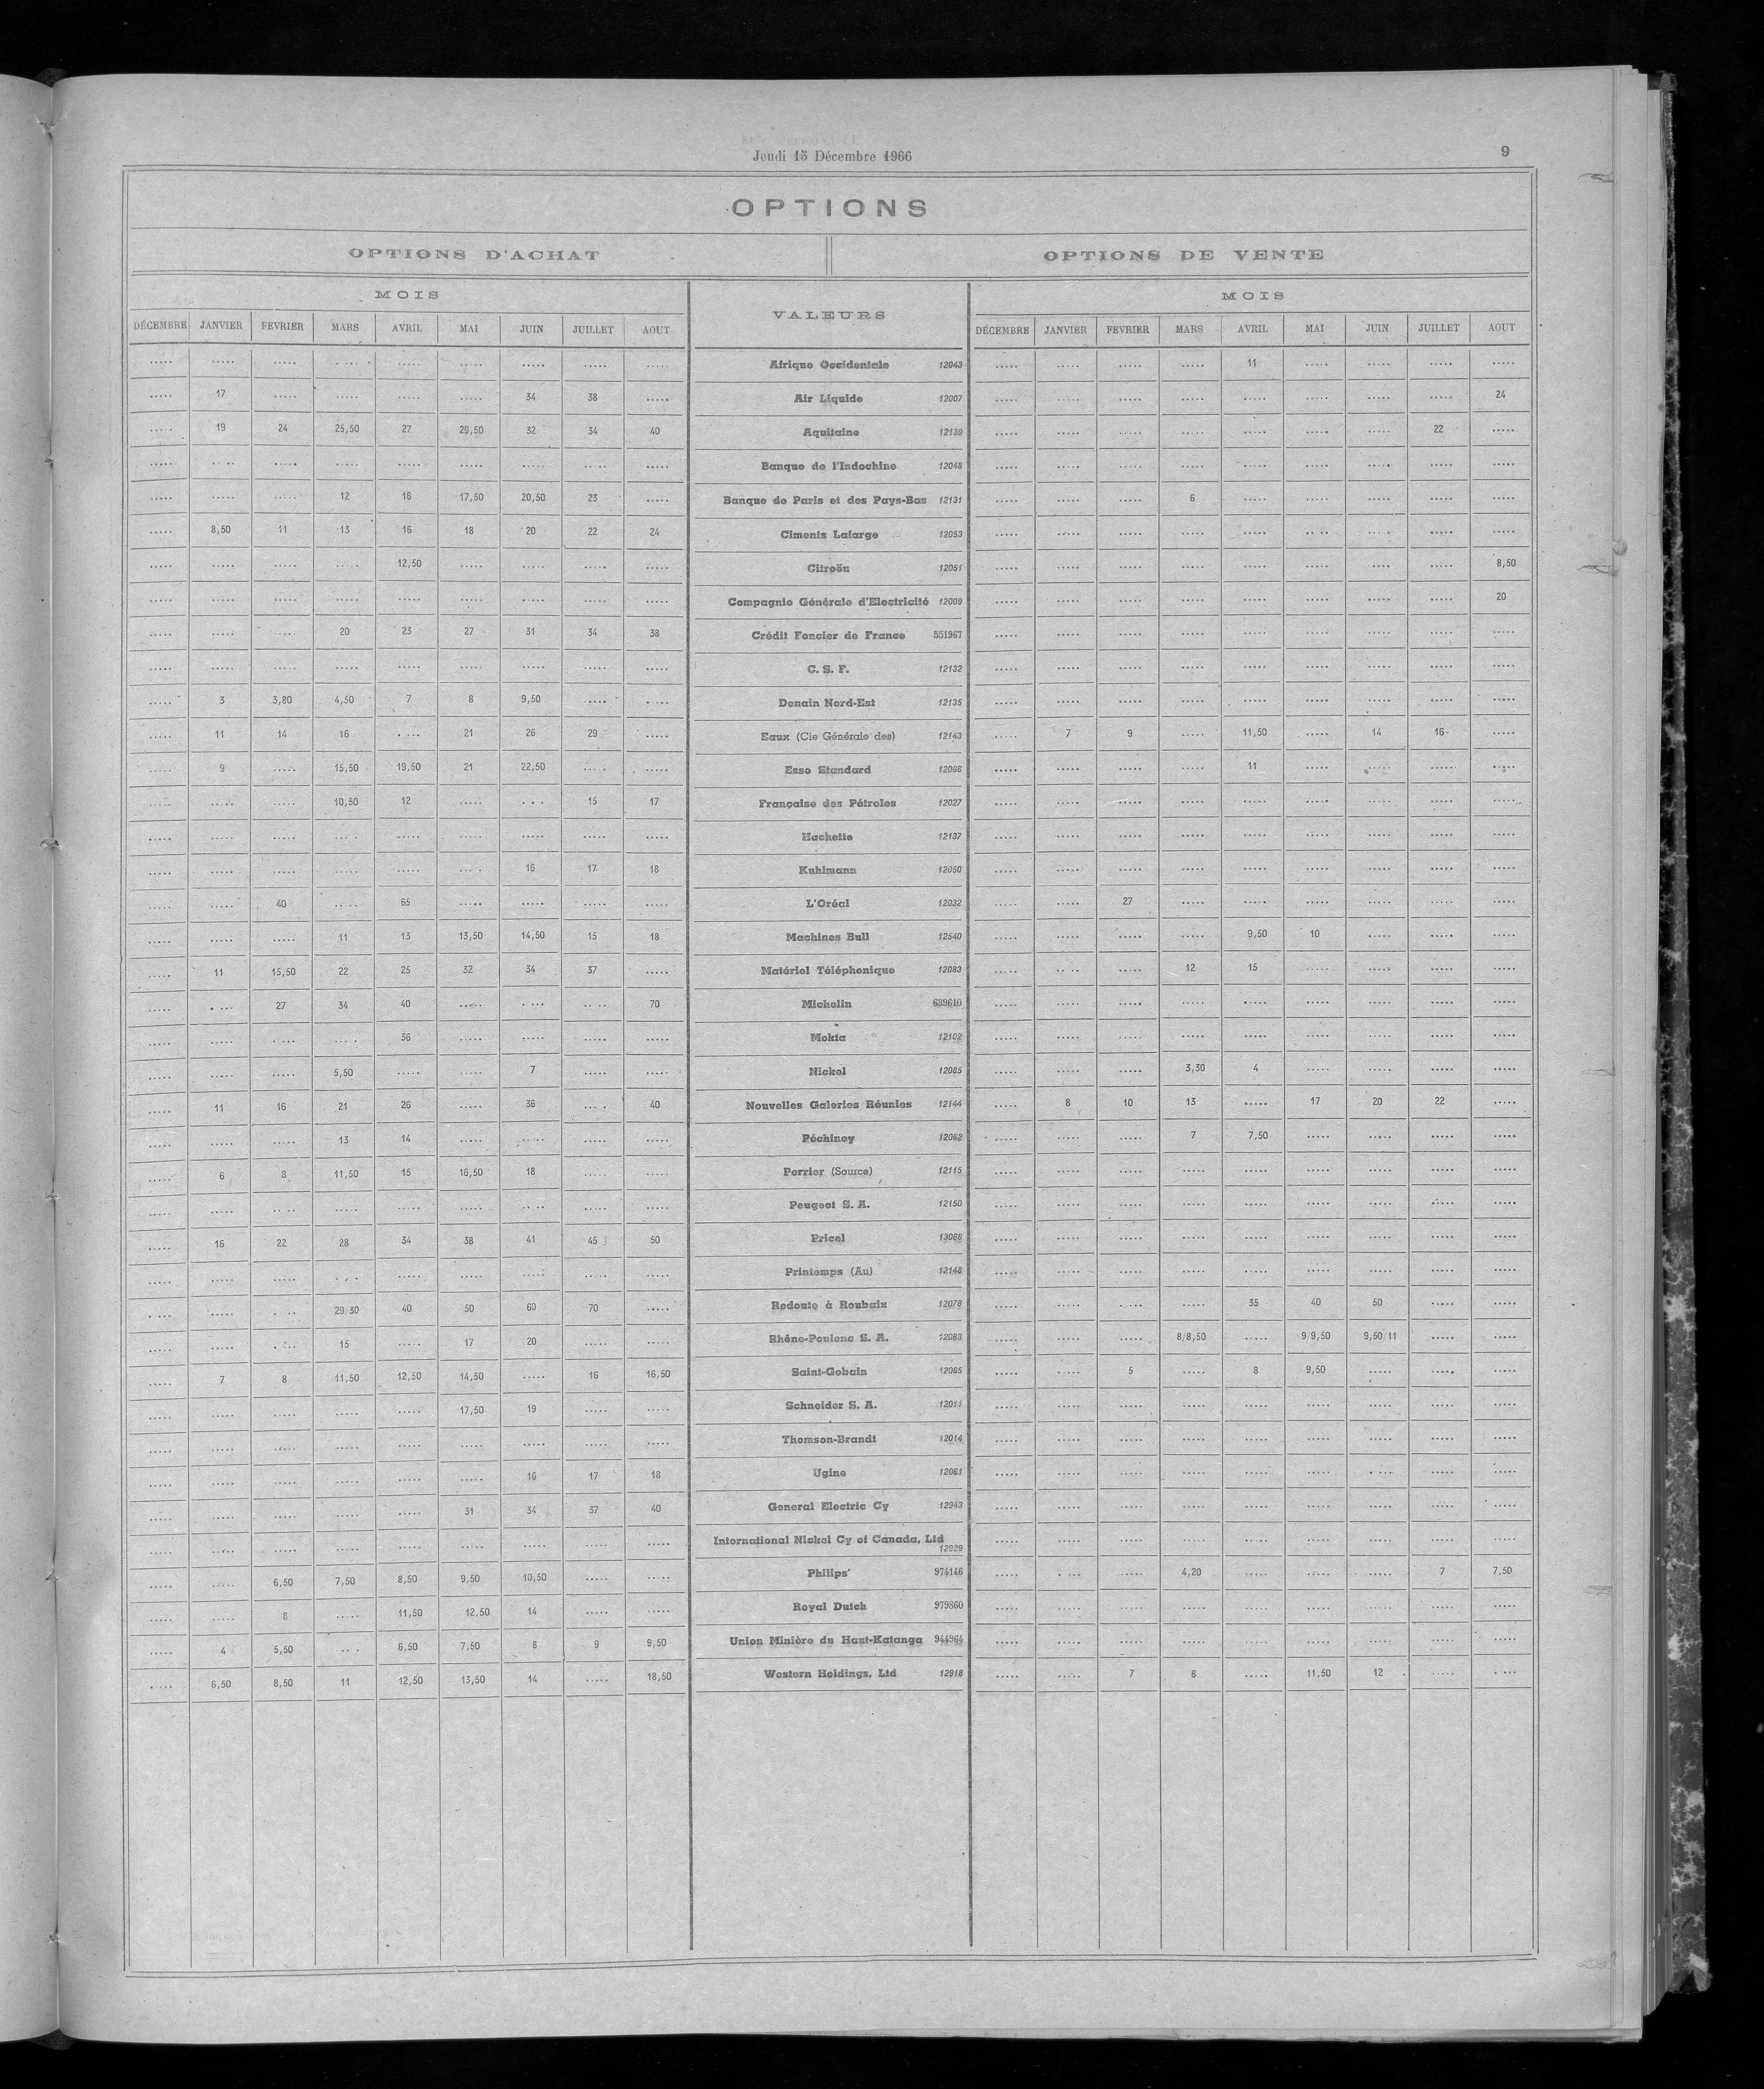 Jeudi 15 Décembre 1966
9
OPTIONS
OPTIONS D'ACHAT OPTIONS DE VENTE
MOIS VALEURS MOIS
DÉCEMBRE JANVIER FEVRIER MARS AVRIL MAI JUIN JUILLET AOUT DÉCEMBRE JANVIER FEVRIER MARS AVRIL MAI JUIN JUILLET AOUT
..... ..... ..... ..... ..... ..... ..... ..... ..... Afrique Occidentale 12043 ..... ..... ..... ..... 11 ..... ..... ..... .....
..... 17 ..... ..... ..... ..... 34 38 ..... Air Liquide 12007 ..... ..... ..... ..... ..... ..... ..... ..... 24
..... 19 24 25,50 27 29,50 32 34 40 Aquitaine 12139 ..... ..... ..... ..... ..... ..... ..... 22 .....
..... ..... ..... ..... ..... ..... ..... ..... ..... Banque de l'Indochine 12048 ..... ..... ..... ..... ..... ..... ..... ..... .....
..... ..... ..... 12 16 17,50 20,50 23 ..... Banque de Paris et des Pays-Bas 12131 ..... ..... ..... 6 ..... ..... ..... ..... .....
..... 8,50 11 13 16 18 20 22 24 Ciments Lafarge 12053 ..... ..... ..... ..... ..... ..... ..... ..... .....
..... ..... ..... ..... 12,50 ..... ..... ..... ..... Citroën 12051 ..... ..... ..... ..... ..... ..... ..... ..... 8,50
..... ..... ..... ..... ..... ..... ..... ..... ..... Compagnie Générale d'Electricité 12009 ..... ..... ..... ..... ..... ..... ..... ..... 20
..... ..... ..... 20 23 27 31 34 38 Crédit Foncier de France 551967 ..... ..... ..... ..... ..... ..... ..... ..... .....
..... ..... ..... ..... ..... ..... ..... ..... ..... C. S. F. 12132 ..... ..... ..... ..... ..... ..... ..... ..... .....
..... 3 3,80 4,50 7 8 9,50 ..... ..... Denain Nord-Est 12135 ..... ..... ..... ..... ..... ..... ..... ..... .....
..... 11 14 16 ..... 21 26 29 ..... Eaux (Cie Générale des) 12143 ..... 7 9 ..... 11,50 ..... 14 16 .....
..... 9 ..... 15,50 19,50 21 22,50 ..... ..... Esso Standard 12066 ..... ..... ..... ..... 11 ..... ..... ..... .....
..... ..... ..... 10,50 12 ..... ..... 15 17 Française des Pétroles 12027 ..... ..... ..... ..... ..... ..... ..... ..... .....
..... ..... ..... ..... ..... ..... ..... ..... ..... Hachette 12137 ..... ..... ..... ..... ..... ..... ..... ..... .....
..... ..... ..... ..... ..... ..... 16 17 18 Kuhlmann 12050 ..... ..... ..... ..... ..... ..... ..... ..... .....
..... ..... 40 ..... 65 ..... ..... ..... ..... L'Oréal 12032 ..... ..... 27 ..... ..... ..... ..... ..... .....
..... ..... ..... 11 13 13,50 14,50 15 18 Machines Bull 12540 ..... ..... ..... ..... 9,50 10 ..... ..... .....
..... 11 15,50 22 25 32 34 37 ..... Matériel Téléphonique 12083 ..... ..... ..... 12 15 ..... ..... ..... .....
..... ..... 27 34 40 ..... ..... ..... 70 Michelin 639610 ..... ..... ..... ..... ..... ..... ..... ..... .....
..... ..... ..... ..... 36 ..... ..... ..... ..... Mokta 12102 ..... ..... ..... ..... ..... ..... ..... ..... .....
..... ..... ..... 5,50 ..... ..... 7 ..... ..... Nickel 12085 ..... ..... ..... 3,30 4 ..... ..... ..... .....
..... 11 16 21 26 ..... 36 ..... 40 Nouvelles Galeries Réunies 12144 ..... 8 10 13 ..... 17 20 22 .....
..... ..... ..... 13 14 ..... ..... ..... ..... Péchiney 12062 ..... ..... ..... 7 7,50 ..... ..... ..... .....
..... 6 8 11,50 15 16,50 18 ..... ..... Perrier (Source) 12115 ..... ..... ..... ..... ..... ..... ..... ..... .....
..... ..... ..... ..... ..... ..... ..... ..... ..... Peugeot S. A. 12150 ..... ..... ..... ..... ..... ..... ..... ..... .....
..... 16 22 28 34 38 41 45 50 Pricel 13066 ..... ..... ..... ..... ..... ..... ..... ..... .....
..... ..... ..... ..... ..... ..... ..... ..... ..... Printemps (Au) 12148 ..... ..... ..... ..... ..... ..... ..... ..... .....
..... ..... ..... 29/30 40 50 60 70 ..... Redoute à Roubaix 12078 ..... ..... ..... ..... 35 40 50 ..... .....
..... ..... ..... 15 ..... 17 20 ..... ..... Rhône-Poulenc S. A. 12063 ..... ..... ..... 8/8,50 ..... 9/9,50 9,50/11 ..... .....
..... 7 8 11,50 12,50 14,50 ..... 16 16,50 Saint-Gobain 12065 ..... ..... 5 ..... 8 9,50 ..... ..... .....
..... ..... ..... ..... ..... 17,50 19 ..... ..... Schneider S. A. 12011 ..... ..... ..... ..... ..... ..... ..... ..... .....
..... ..... ..... ..... ..... ..... ..... ..... ..... Thomson-Brandt 12014 ..... ..... ..... ..... ..... ..... ..... ..... .....
..... ..... ..... ..... ..... ..... 16 17 18 Ugine 12061 ..... ..... ..... ..... ..... ..... ..... ..... .....
..... ..... ..... ..... ..... 31 34 37 40 General Electric Cy 12943 ..... ..... ..... ..... ..... ..... ..... ..... .....
..... ..... ..... ..... ..... ..... ..... ..... ..... International Nickel Cy of Canada, Ltd ..... ..... ..... ..... ..... ..... ..... ..... .....
12929
..... ..... 6,50 7,50 8,50 9,50 10,50 ..... ..... Philips' 974146 ..... ..... ..... 4,20 ..... ..... ..... 7 7,50
..... ..... 8 ..... 11,50 12,50 14 ..... ..... Royal Dutch 979860 ..... ..... ..... ..... ..... ..... ..... ..... .....
..... 4 5,50 ..... 6,50 7,50 8 9 9,50 Union Minière du Haut-Katanga 944964 ..... ..... ..... ..... ..... ..... ..... ..... .....
..... 6,50 8,50 11 12,50 13,50 14 ..... 18,50 Western Holdings, Ltd 12918 ..... ..... 7 8 ..... 11,50 12 ..... .....